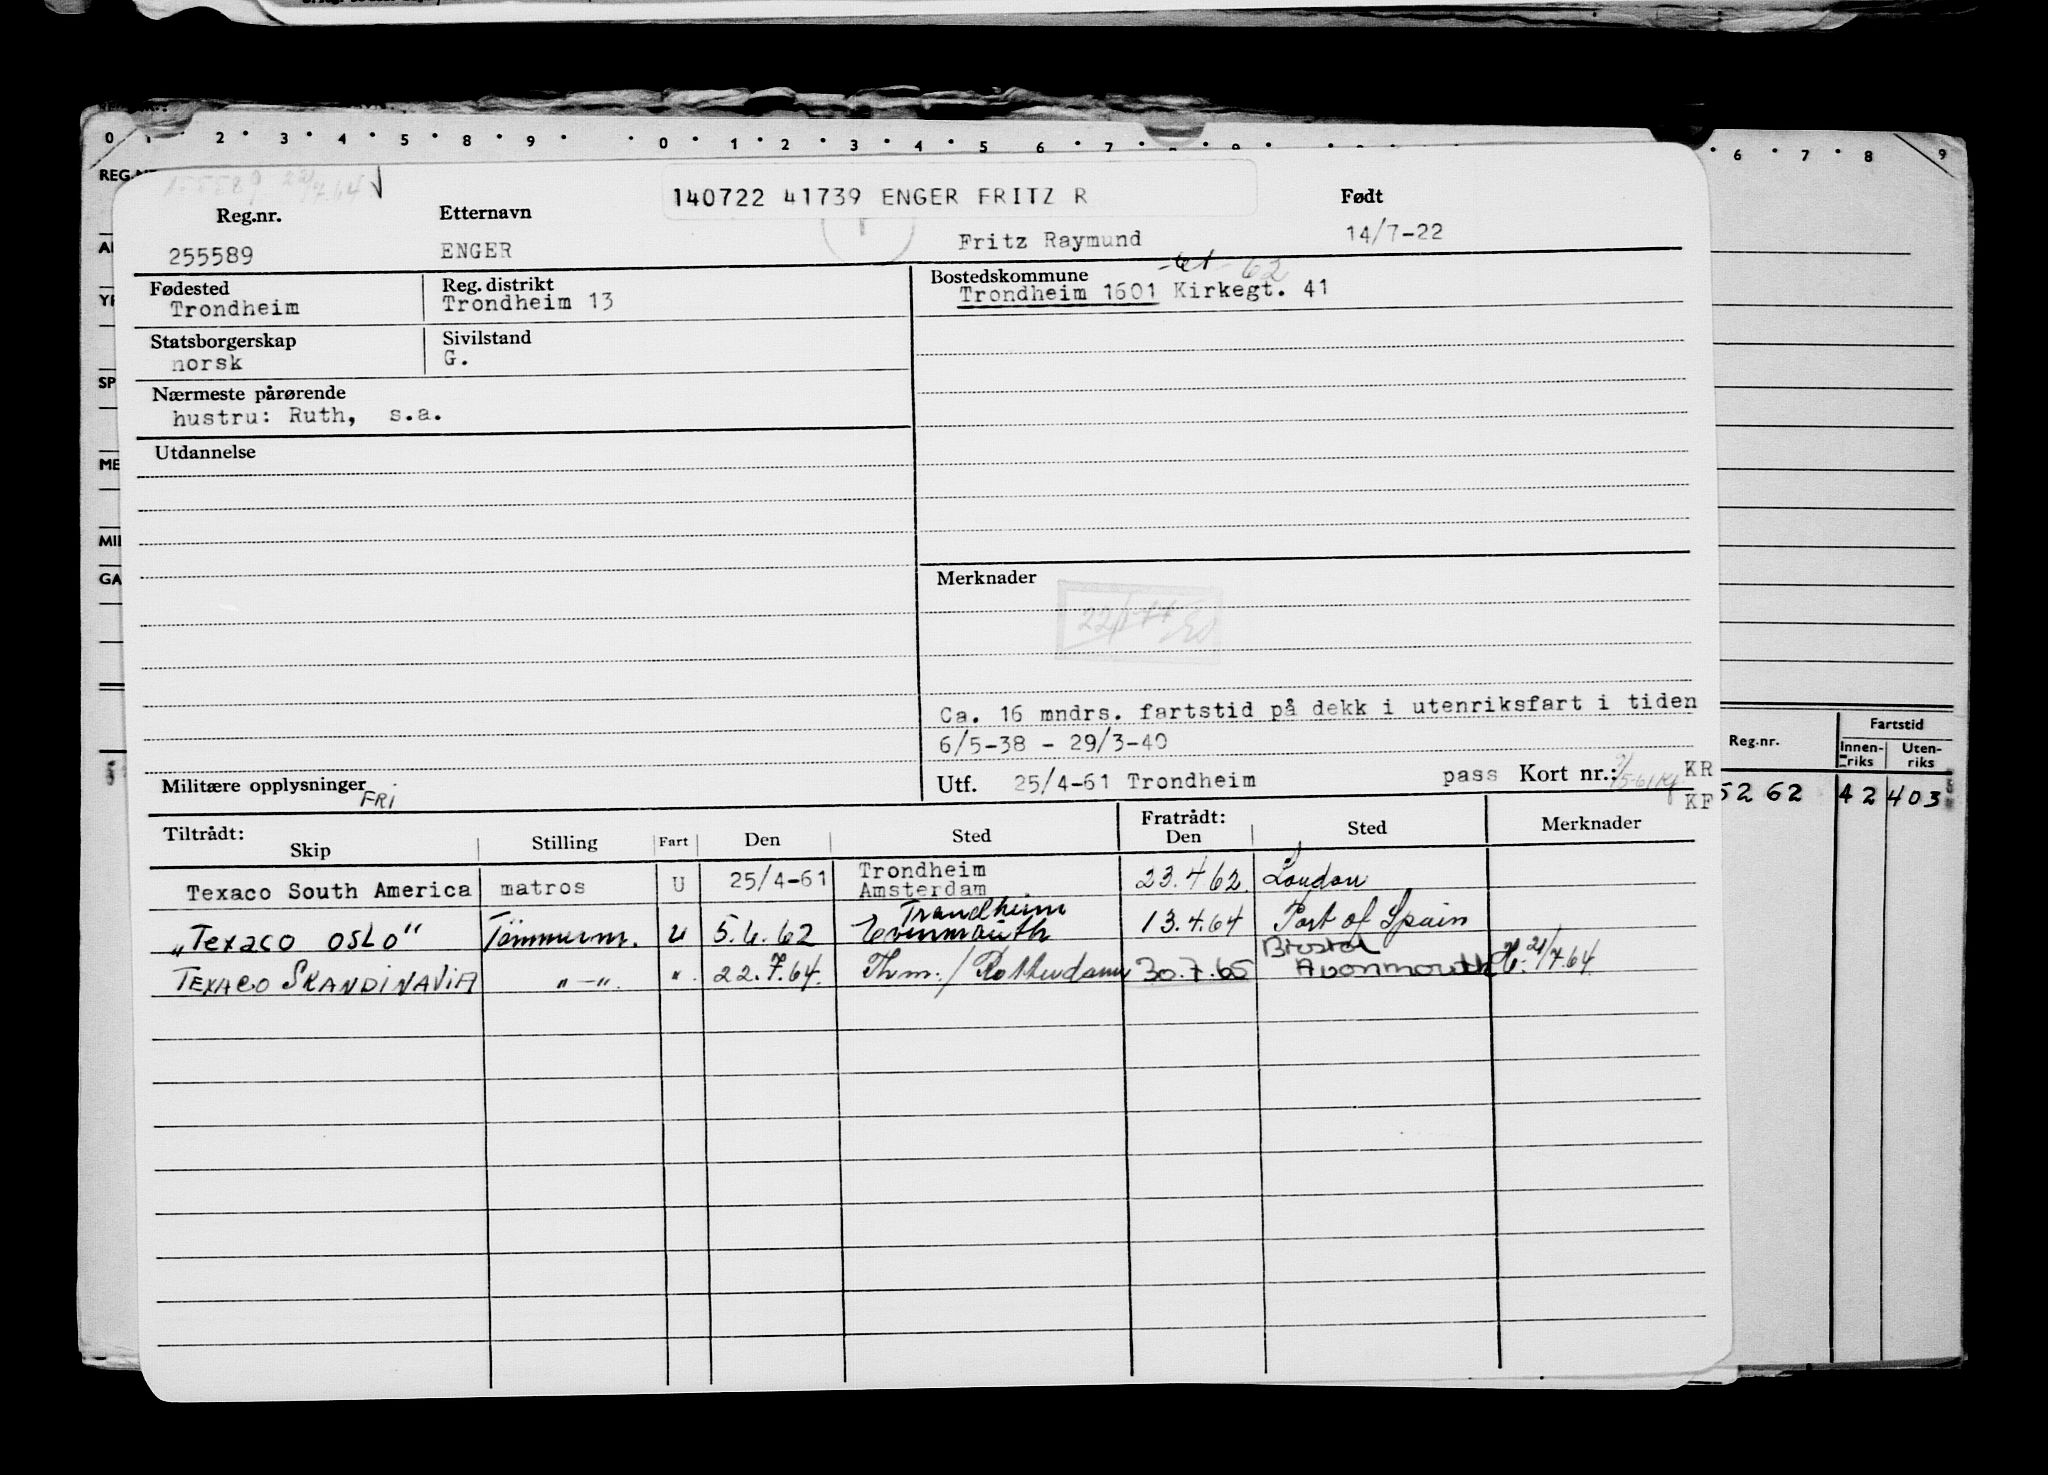 0 1 2 3 4 5 8 9 0 1 2 3 4 5 6 7 8 9 6 7 8 9
REG.NR.
140722 41739 ENGER FRITZ R
Reg.nr. Etternavn Født
255589 ENGER Fritz Raymund 14/7-22
Fødested Reg. distrikt Bostedskommune -61 - 62
Trondheim Trondheim 13 Trondheim 1601 Kirkegt. 41
Statsborgerskap Sivilstand
norsk G.
Nærmeste pårørende
hustru: Ruth, s.a.
Utdannelse
Merknader
Ca. 16 mndrs. fartstid på dekk i utenriksfart i tiden
6/5-38 - 29/3-40
Militære opplysninger FRI Utf. 25/4-61 Trondheim pass Kort nr.: KR
KF
Tiltrådt: Fratrådt:
Skip Stilling Fart Den Sted Den Sted Merknader
Texaco South America matros U 25/4-61 Trondheim Amsterdam 23.4 62. London
"Texaco OSLO" Tömmerm. U 5.6.62 Trondheim 13.4.64 Port of Spain
TEXACO SKANDINAVIA " - ". ". 22.7.64. Thm. / Rotterdam 30.7.65 Bristol Avonmouth 21/7.64.
Reg.nr. Fartstid
Innen-riks Uten-riks
5262 42 403